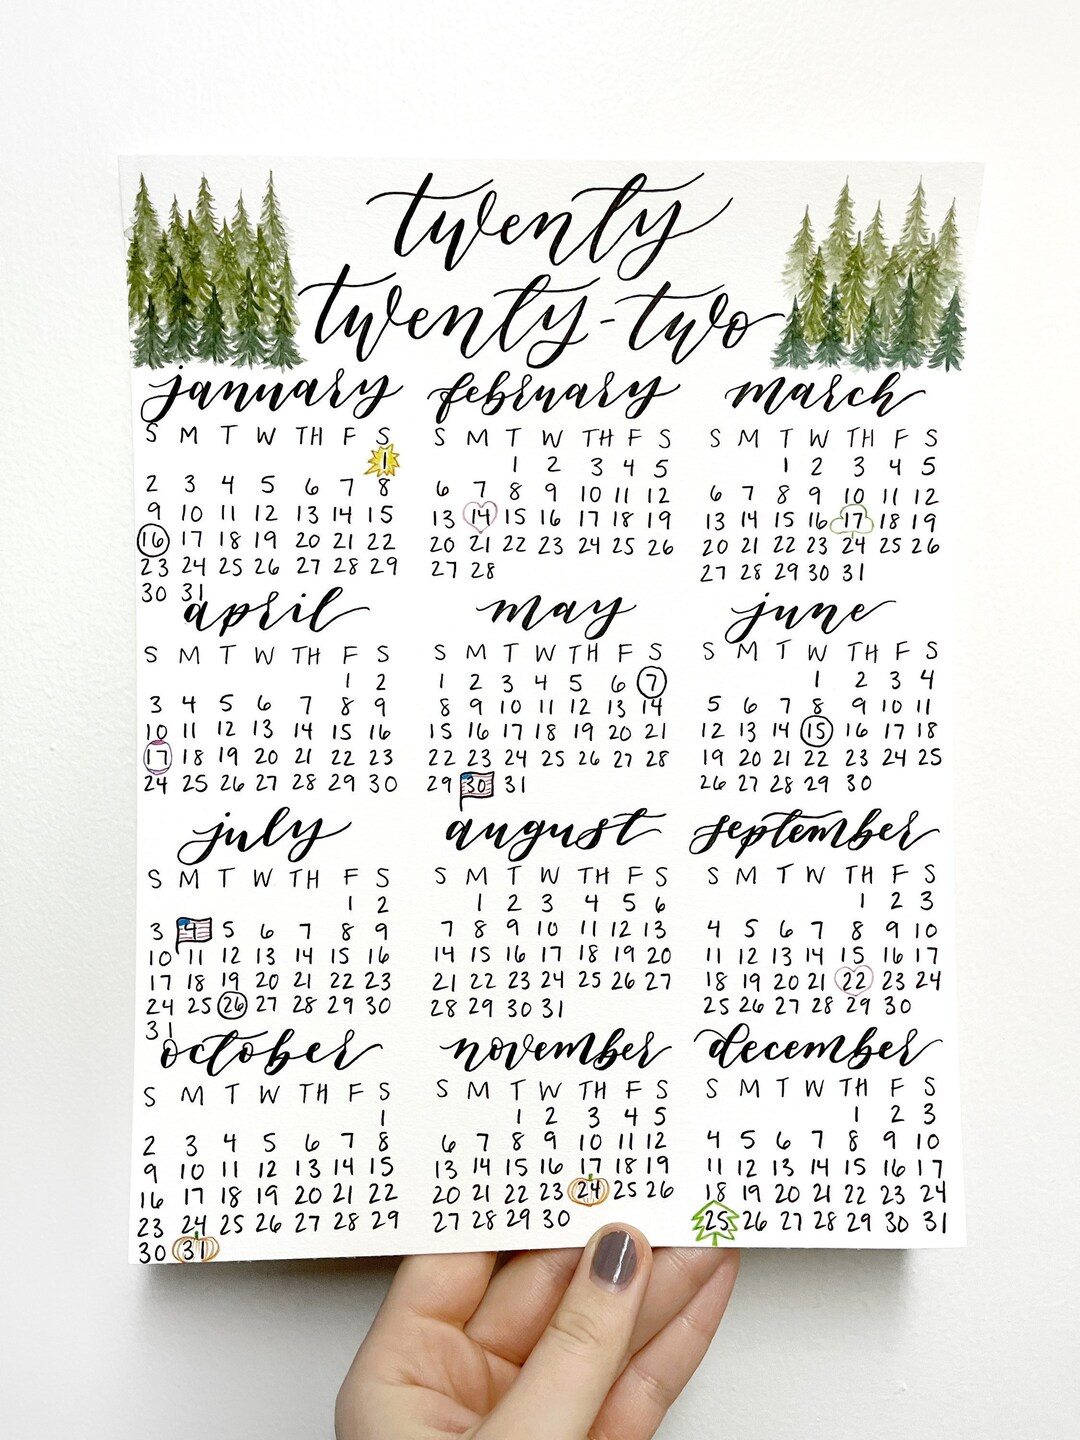 twenty
twenty-two
january
S M T W TH F S
1
2 3 4 5 6 7 8
9 10 11 12 13 14 15
16 17 18 19 20 21 22
23 24 25 26 27 28 29
30 31
february
S M T W TH F S
1 2 3 4 5
6 7 8 9 10 11 12
13 14 15 16 17 18 19
20 21 22 23 24 25 26
27 28
march
S M T W TH F S
1 2 3 4 5
6 7 8 9 10 11 12
13 14 15 16 17 18 19
20 21 22 23 24 25 26
27 28 29 30 31
april
S M T W TH F S
1 2
3 4 5 6 7 8 9
10 11 12 13 14 15 16
17 18 19 20 21 22 23
24 25 26 27 28 29 30
may
S M T W TH F S
1 2 3 4 5 6 7
8 9 10 11 12 13 14
15 16 17 18 19 20 21
22 23 24 25 26 27 28
29 30 31
june
S M T W TH F S
1 2 3 4
5 6 7 8 9 10 11
12 13 14 15 16 17 18
19 20 21 22 23 24 25
26 27 28 29 30
july
S M T W TH F S
1 2
3 4 5 6 7 8 9
10 11 12 13 14 15 16
17 18 19 20 21 22 23
24 25 26 27 28 29 30
31
august
S M T W TH F S
1 2 3 4 5 6
7 8 9 10 11 12 13
14 15 16 17 18 19 20
21 22 23 24 25 26 27
28 29 30 31
september
S M T W TH F S
1 2 3
4 5 6 7 8 9 10
11 12 13 14 15 16 17
18 19 20 21 22 23 24
25 26 27 28 29 30
october
S M T W TH F S
1
2 3 4 5 6 7 8
9 10 11 12 13 14 15
16 17 18 19 20 21 22
23 24 25 26 27 28 29
30 31
november
S M T W TH F S
1 2 3 4 5
6 7 8 9 10 11 12
13 14 15 16 17 18 19
20 21 22 23 24 25 26
27 28 29 30
december
S M T W TH F S
1 2 3
4 5 6 7 8 9 10
11 12 13 14 15 16 17
18 19 20 21 22 23 24
25 26 27 28 29 30 31